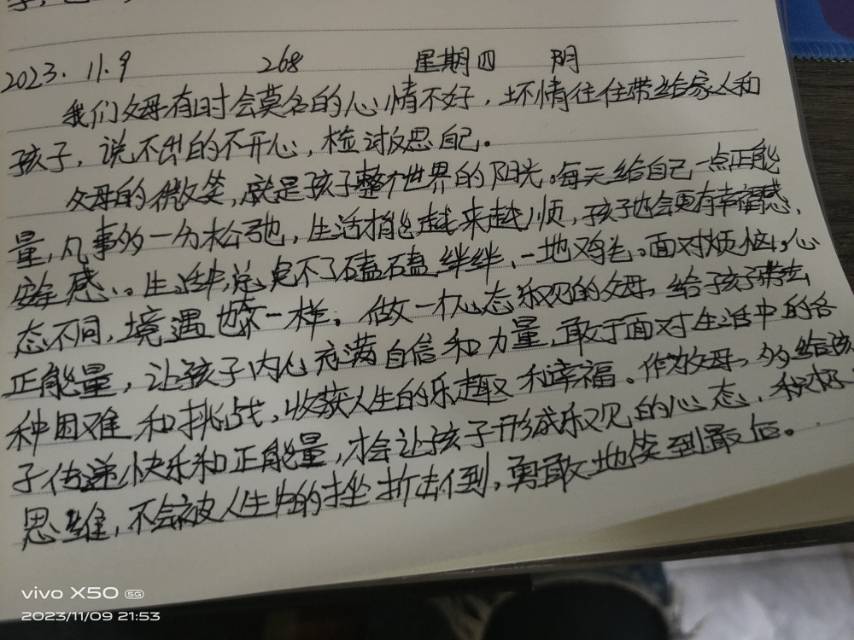 2023.11.9 268 星期四 阴
我们父母有时会莫名的心情不好，坏情往住带给家人和
孩子，说不出的不开心，检讨反思自己。
父母的微笑，就是孩子整个世界的阳光。每天给自己一点正能
量，凡事多一分松弛，生活才能越来越顺，孩子也会更有幸福感，
安全感。生活中总免不了磕磕绊绊，一地鸡毛。面对烦恼，心
态不同，境遇也不一样。做一个心态乐观的父母，给孩子带去
正能量，让孩子内心充满自信和力量，敢于面对生活中的各
种困难和挑战，收获人生的乐趣和幸福。作为父母，多给孩
子传递快乐和正能量，才会让孩子形成乐观的心态，积极
思维，不会被人生中的挫折击倒，勇敢地笑到最后。
vivo X50 5G
2023/11/09 21:53